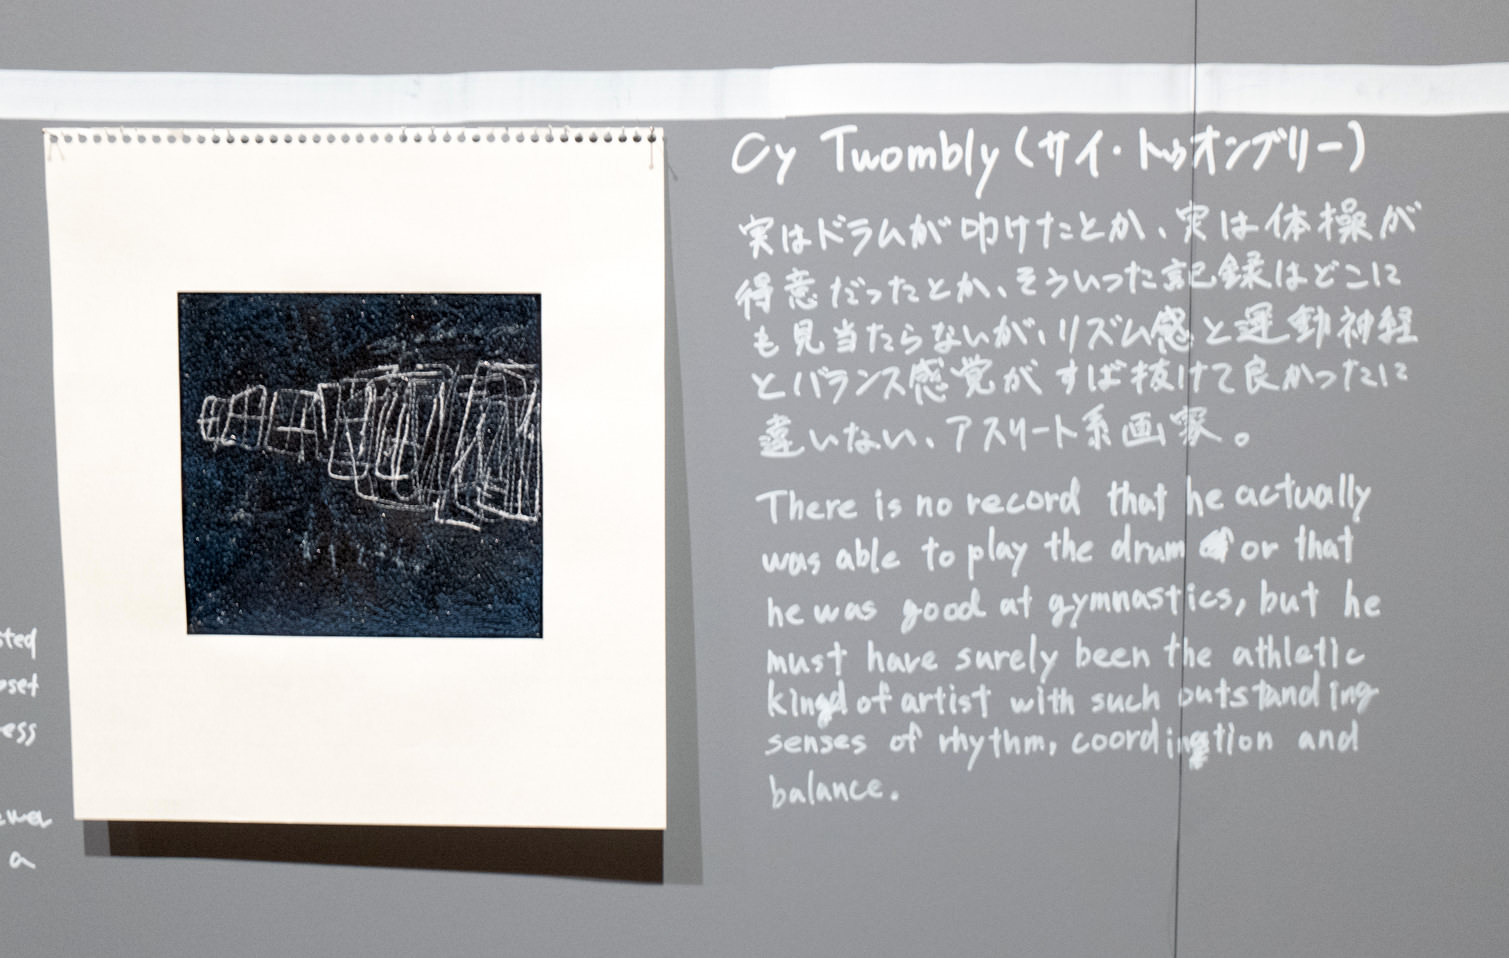 Cy Twombly (サイ・トゥオンブリー)
実はドラムが叩けたとか、実は体操が
得意だったとか、そういった記録はどこに
も見当たらないが、リズム感と運動神経
とバランス感覚がずば抜けて良かったに
違いない、アスリート系画家。
There is no record that he actually
was able to play the drum or that
he was good at gymnastics, but he
must have surely been the athletic
kind of artist with such outstanding
senses of rhythm, coordination and
balance.
ess
a